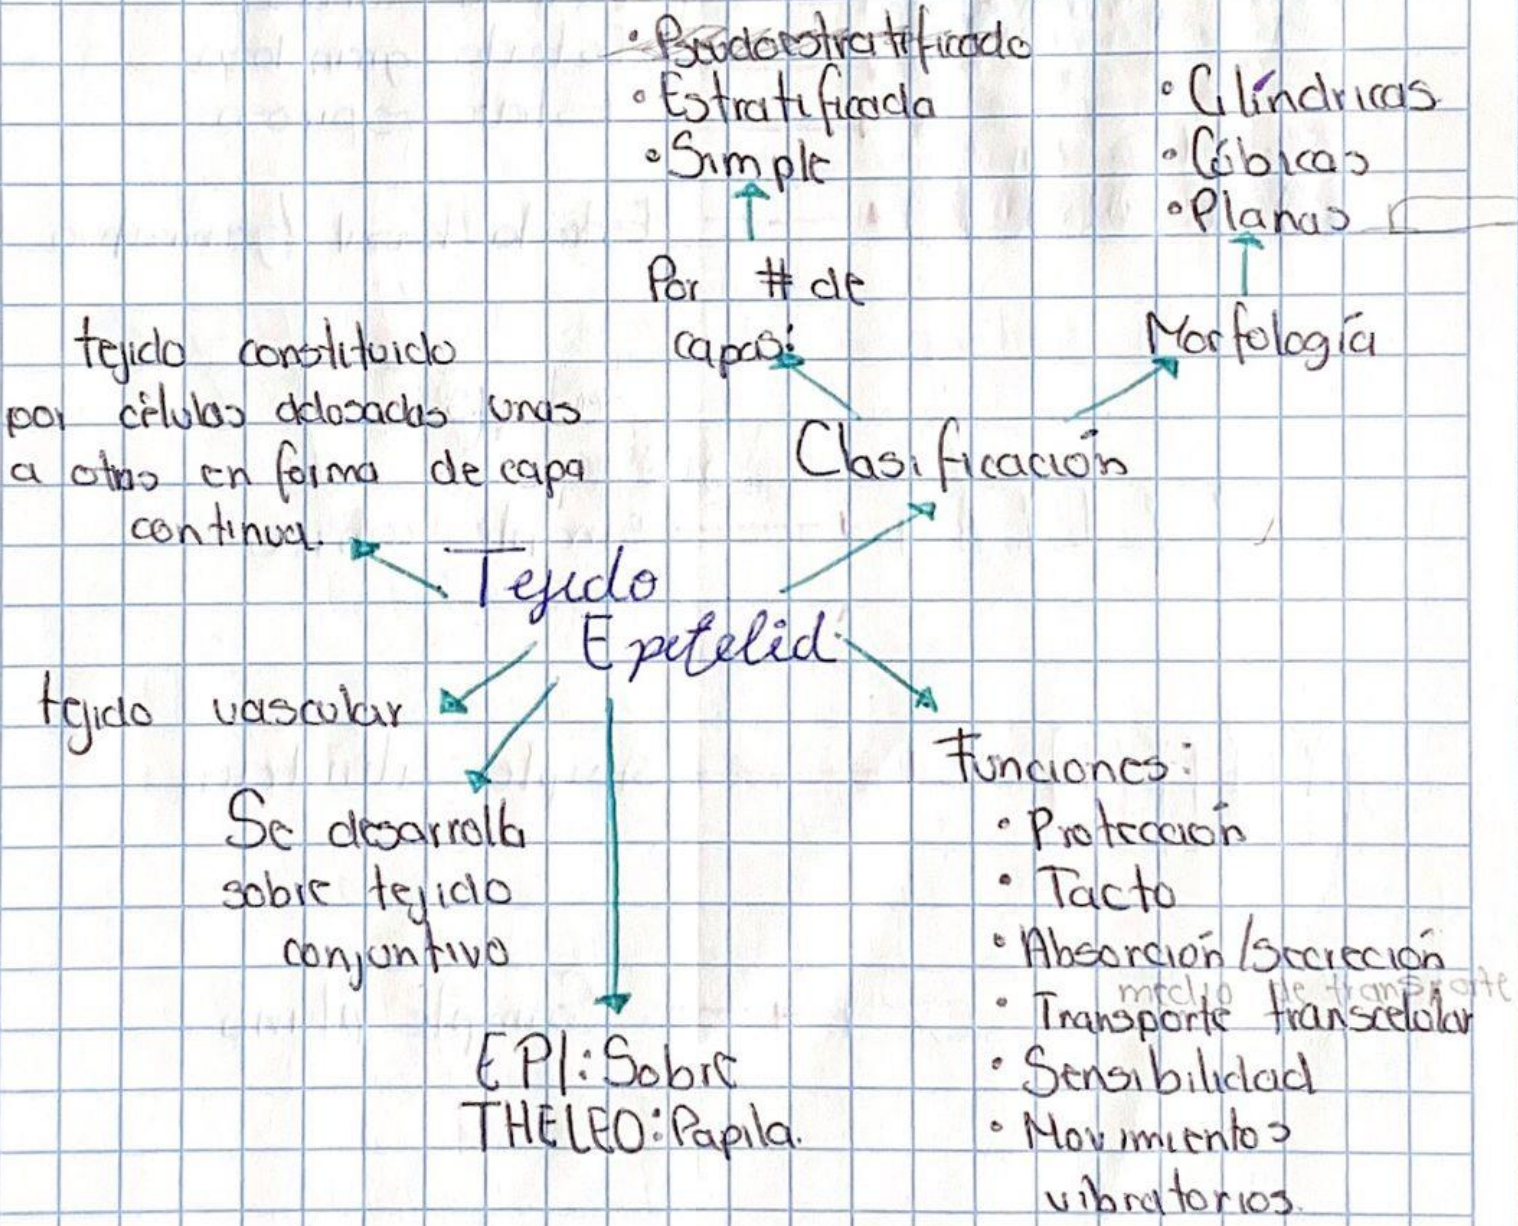 • Pseudoestratificado
• Estratificada
• Simple
Por # de
capas:
• Cilíndricas
• Cúbicas
• Planas
Morfología
Clasificación
tejido constituido
por células adosadas unas
a otras en forma de capa
continua.
Tejido
Epitelial
tejido vascular
Se desarrolla
sobre tejido
conjuntivo
EPI: Sobre
THELEO: Papila.
Funciones:
• Protección
• Tacto
• Absorción/Secreción
medio de transporte
• Transporte transcelular
• Sensibilidad
• Movimientos
vibratorios.